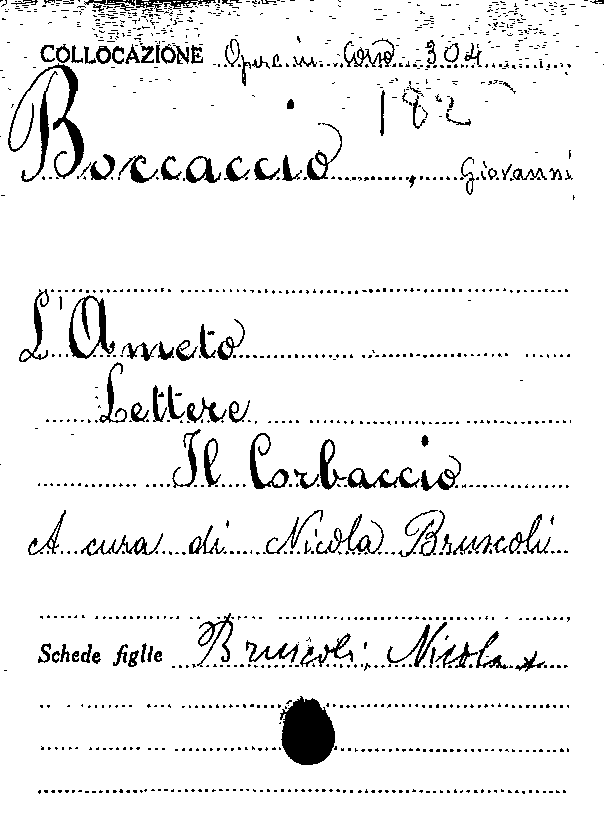 COLLOCAZIONE Opera in Corso 304
182
Boccaccio, Giovanni
L'Ameto
Lettere
Il Corbaccio
A cura di Nicola Bruscoli
Schede figlie Bruscoli, Nicola x